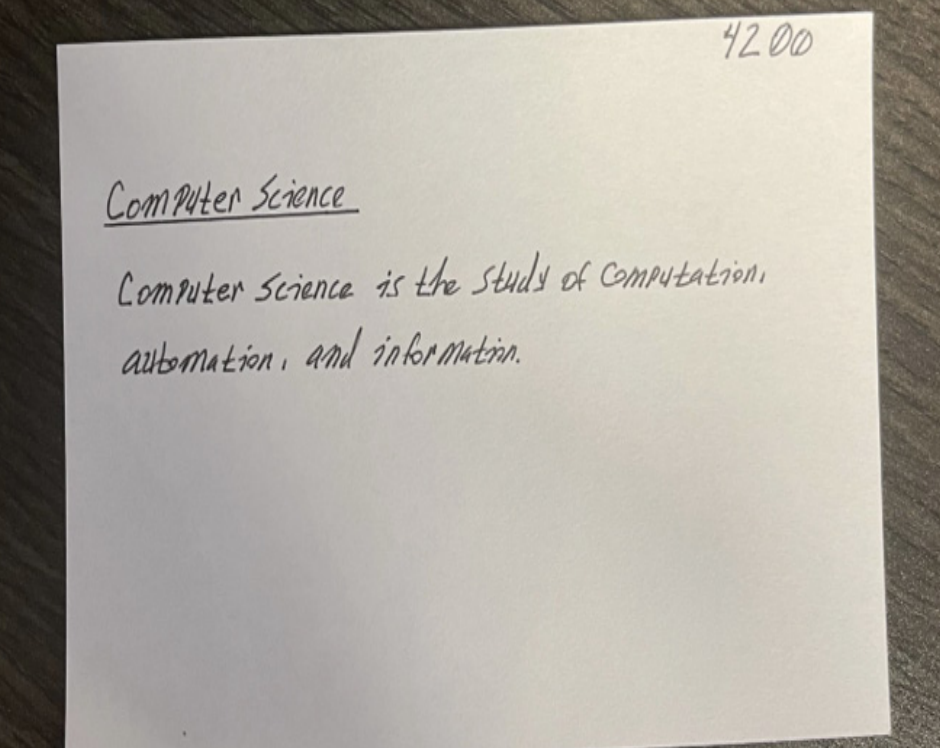 4200
Computer Science
Computer Science is the study of computation,
automation, and information.